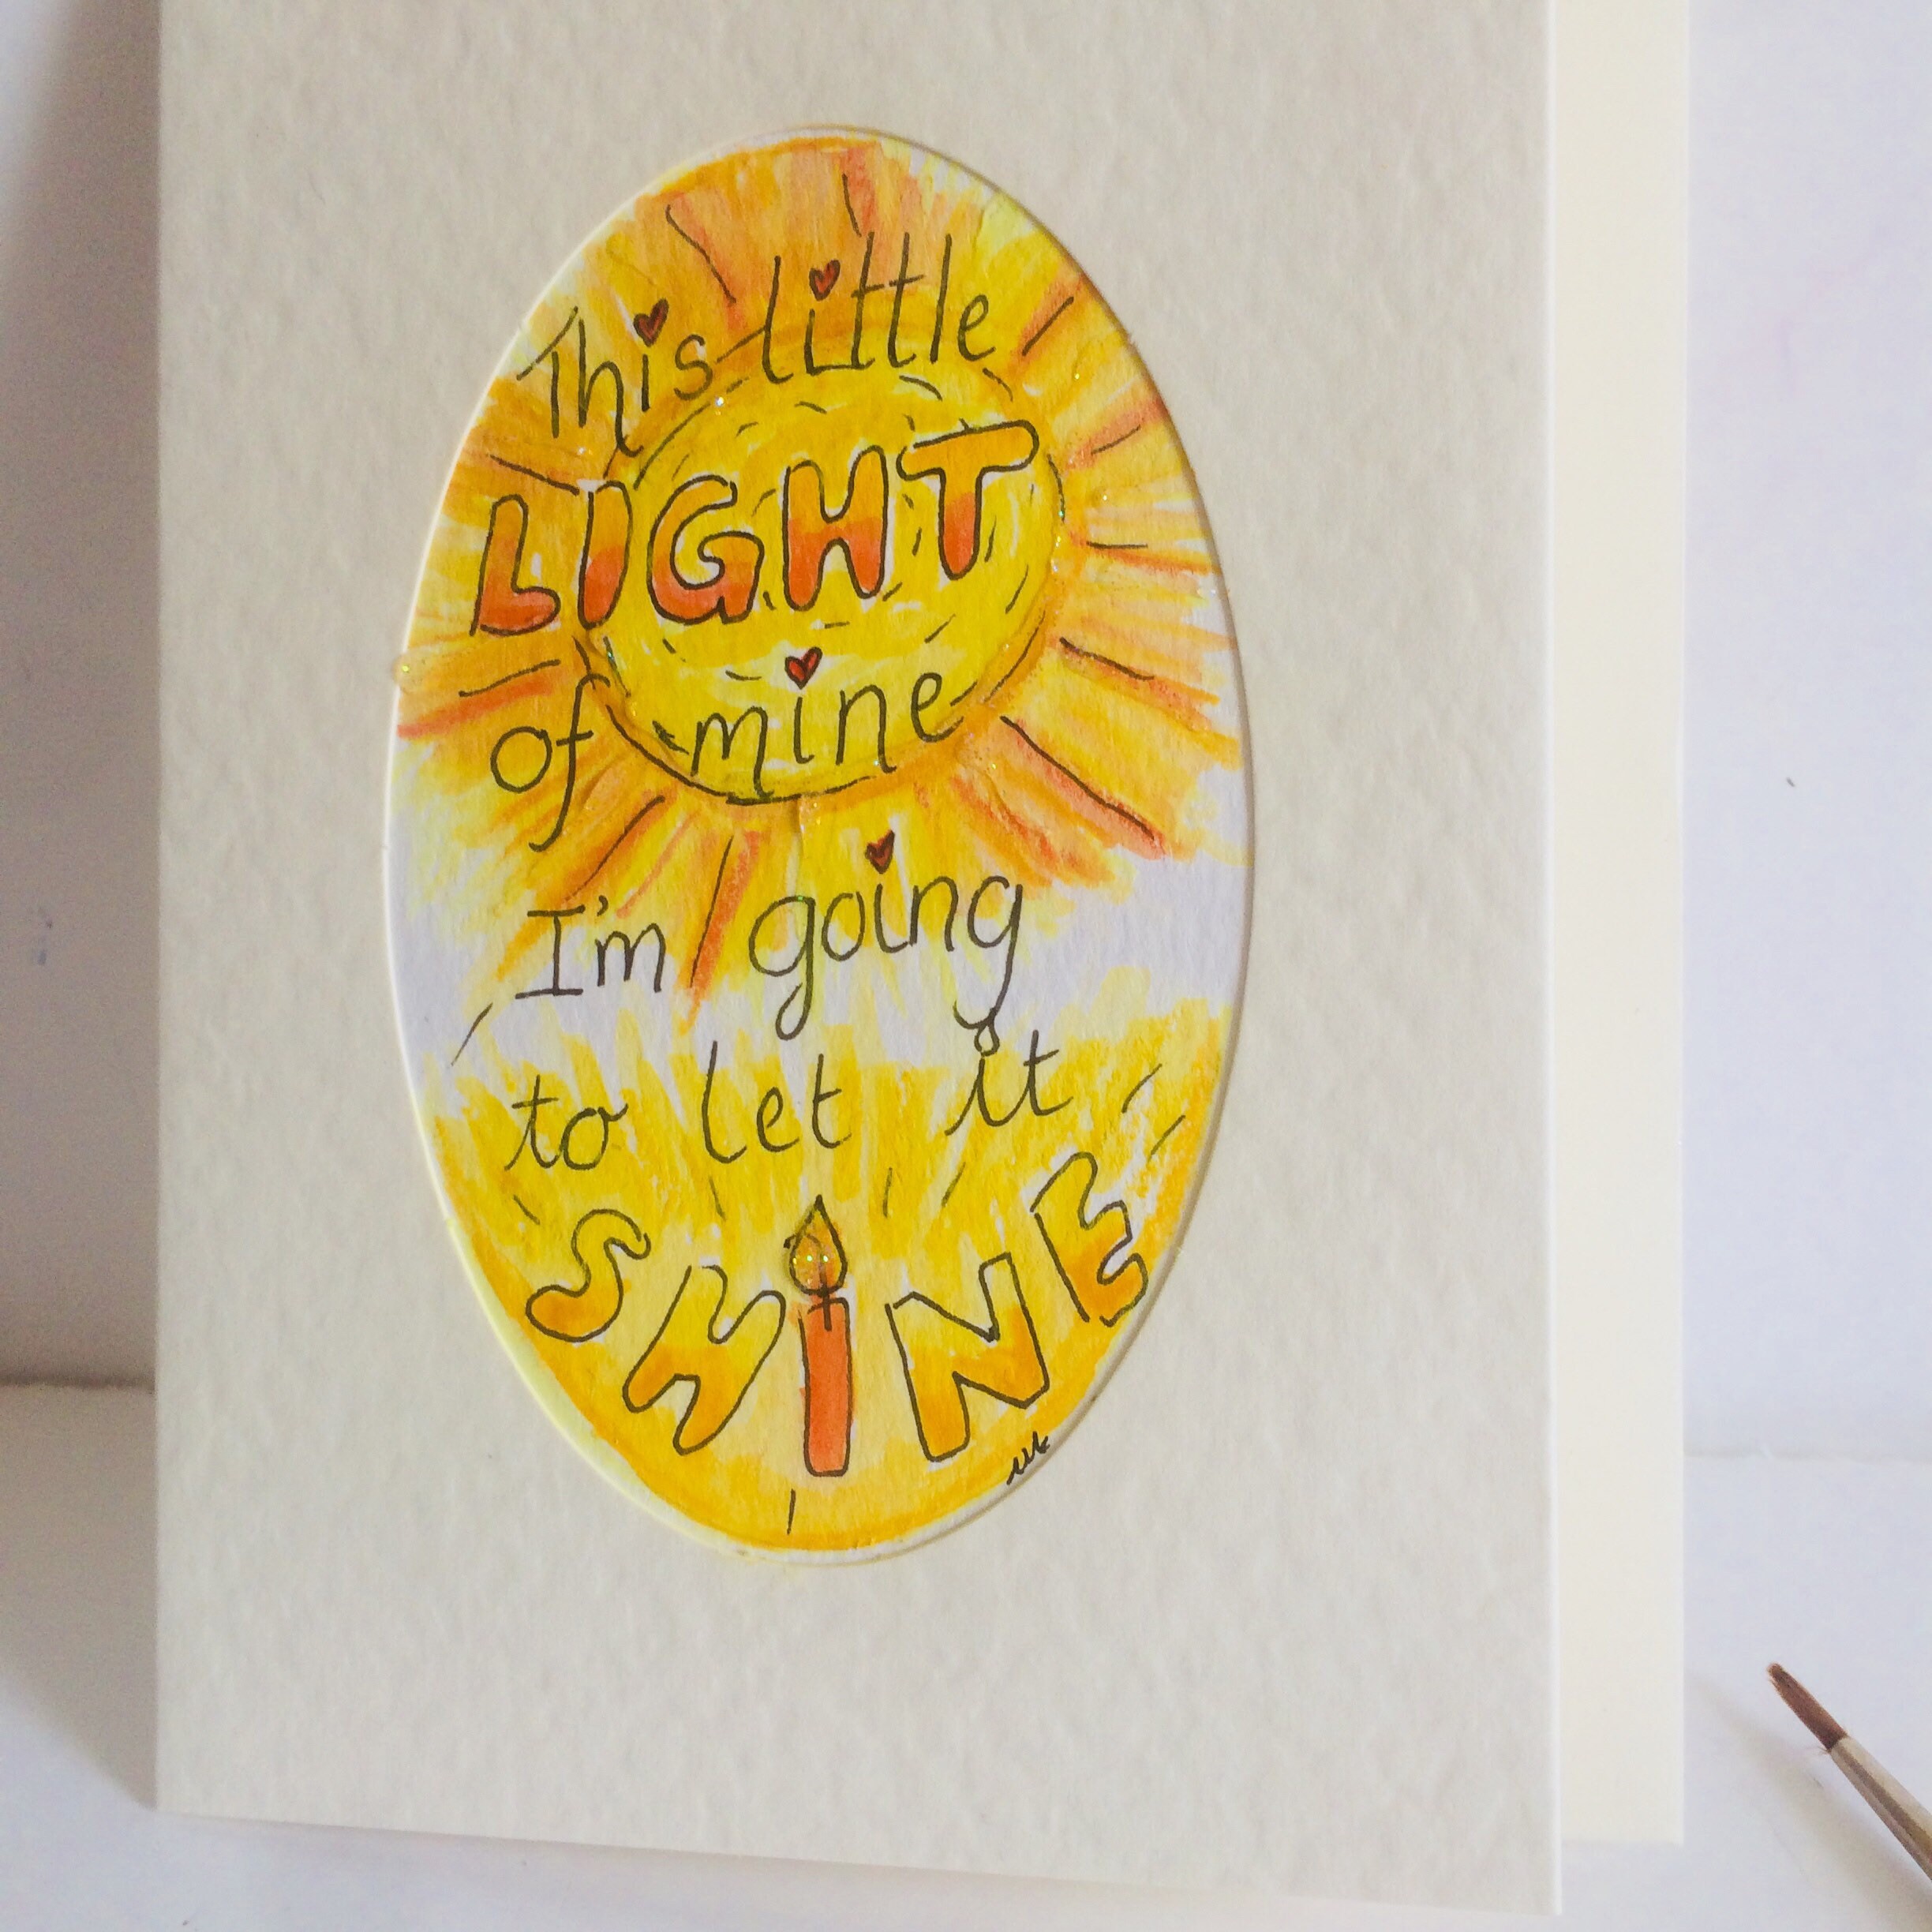 This little
LIGHT
of mine
I'm going
to let it
SHINE